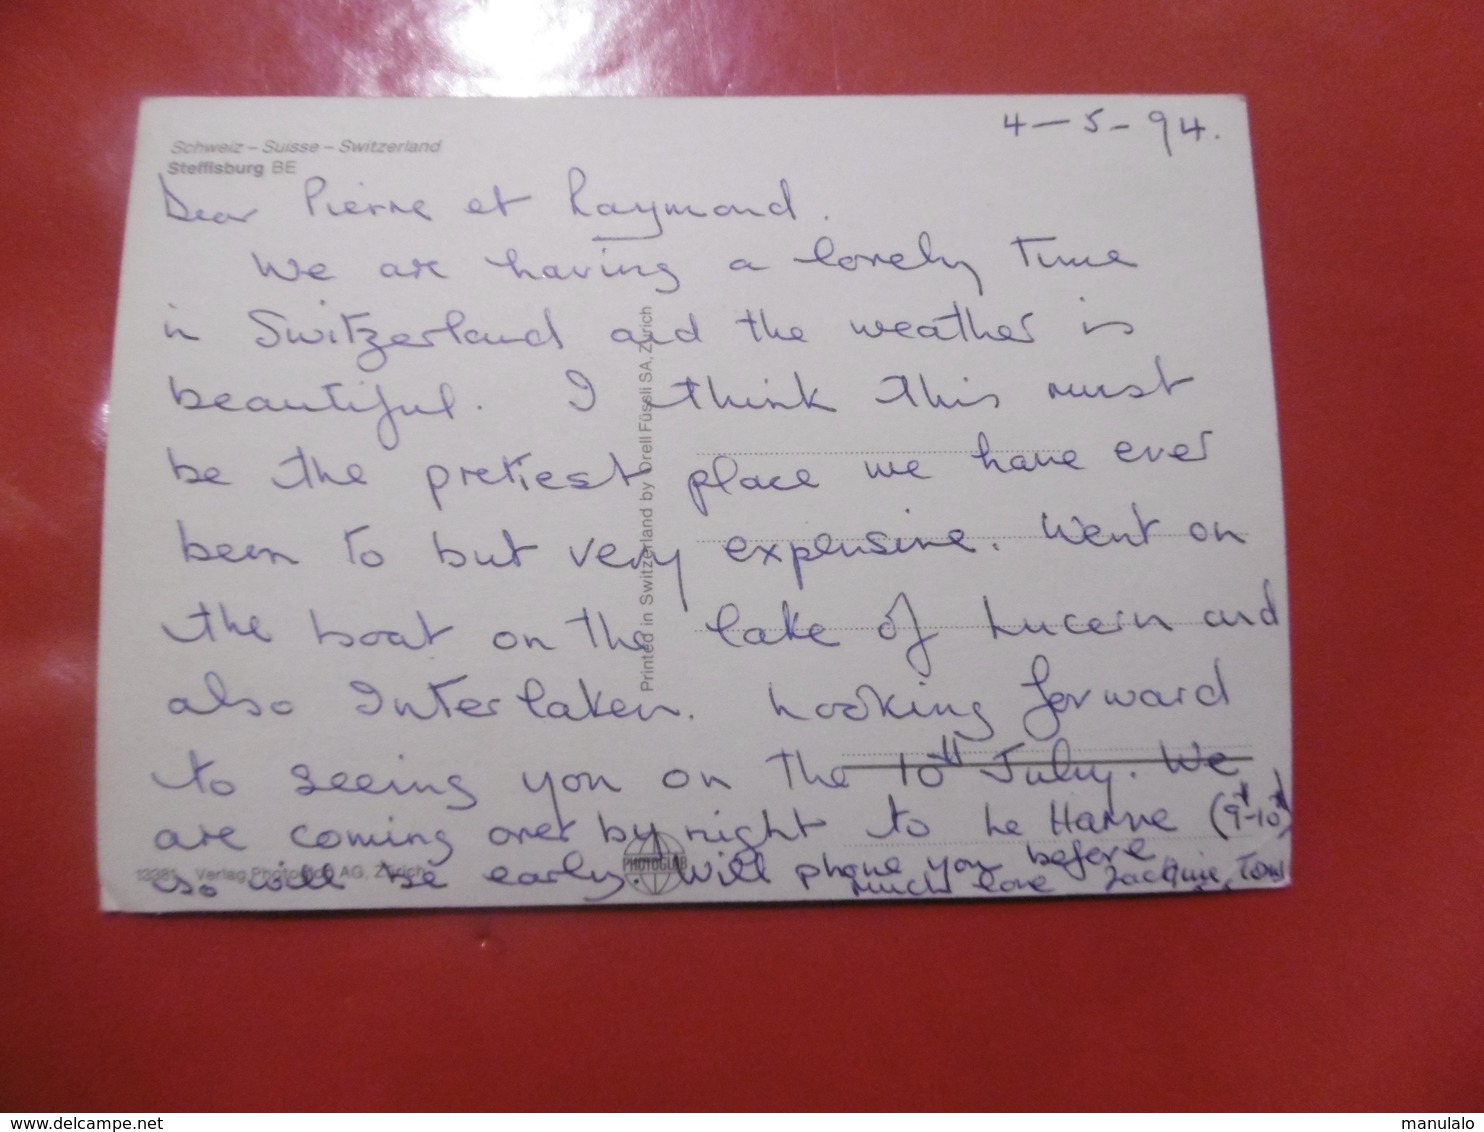 4-5-94.
Schweiz – Suisse – Switzerland
Steffisburg BE
Dear Pierre et Raymond.
We are having a lovely time
in Switzerland and the weather is
beautiful. I think this must
be the pretiest place we have ever
been to but very expensive. Went on
the boat on the lake of Lucern and
also Interlaken. Looking forward
to seeing you on the 10th July. We
are coming over by night to Le Havre (9th-10th)
so will be early. Will phone you before
much love Jacquie, Tom
Printed in Switzerland by Orell Füssli SA, Zürich
PHOTOGLOB
Verlag Photoglob AG, Zürich
delcampe.net
manulalo